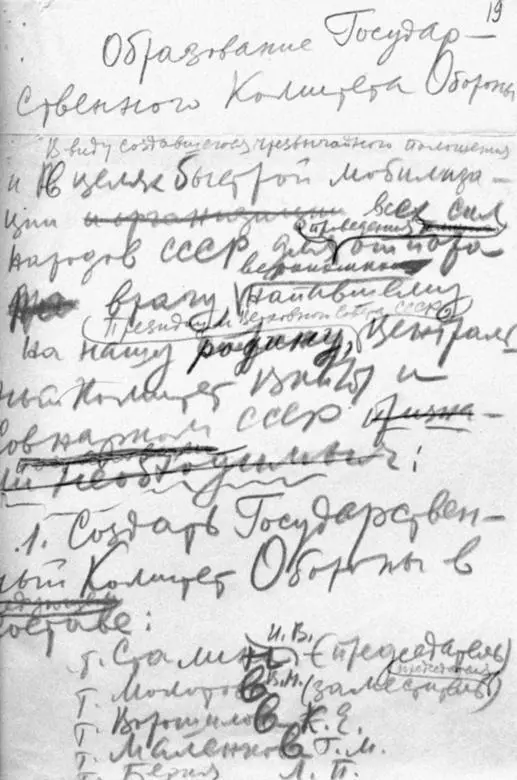 19
Образование Государ-
ственного Комитета Обороны
Ввиду создавшегося чрезвычайного положения
и в целях быстрой мобилиза-
ции и организации всех сил
проведения
народов СССР для отпора
вероломно
врагу напавшему
Президиум Верховного Совета СССР
на нашу родину, Централь-
ный Комитет ВКП(б) и
Совнарком СССР призна-
ли необходимым:
1. Создать Государствен-
ный Комитет Обороны в
составе:
т. Сталин И.В. (председатель)
т. Молотов В.М. (заместитель)
т. Ворошилов К.Е.
т. Маленков Г.М.
т. Берия Л.П.